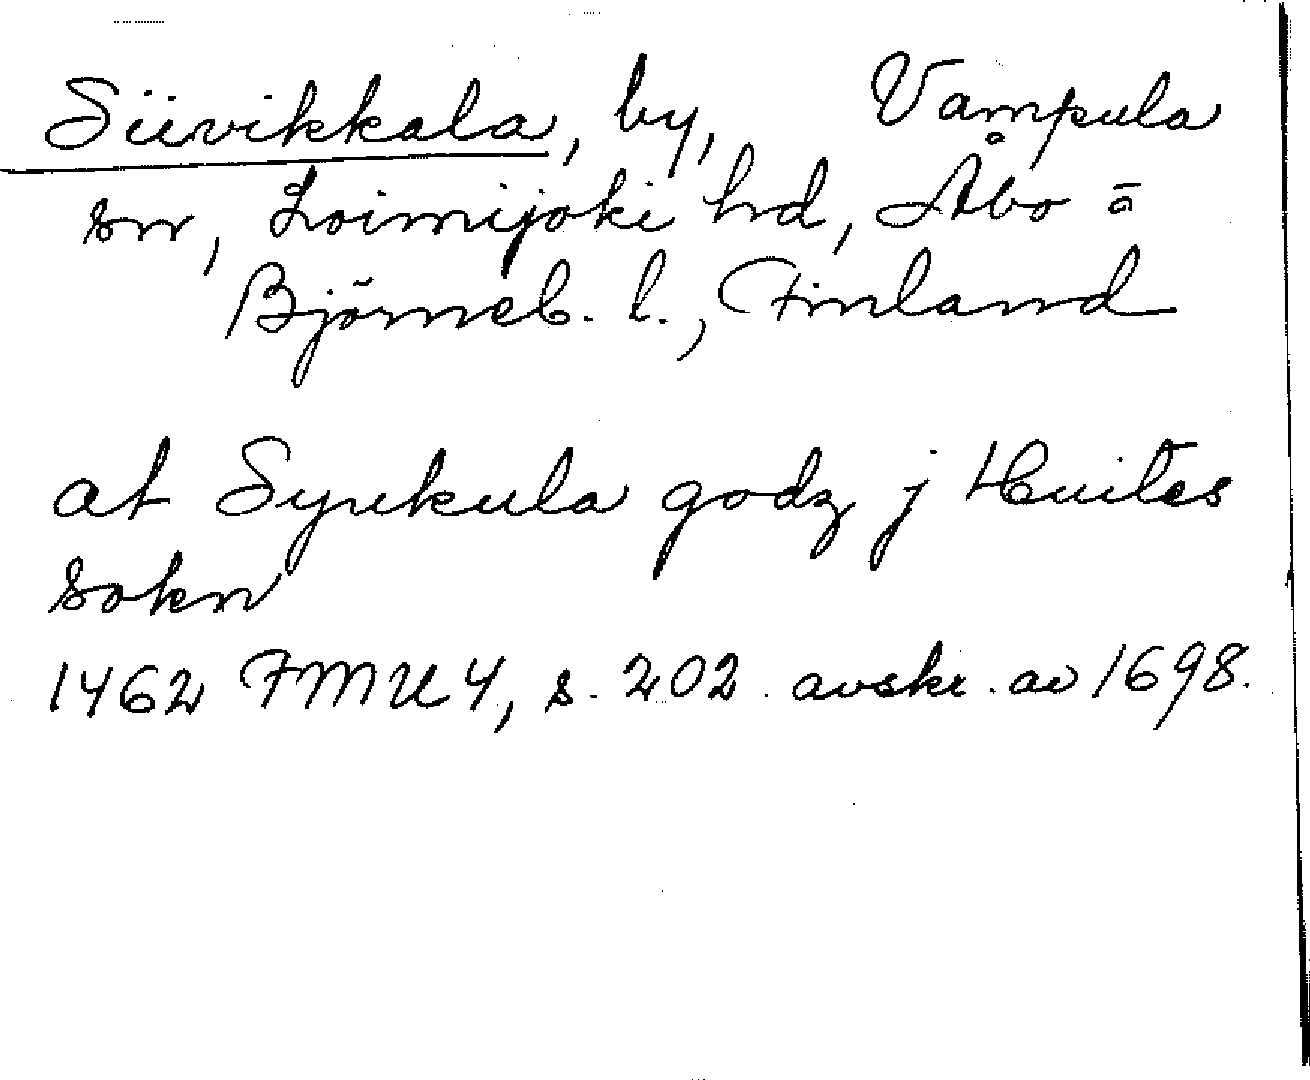 Siivikkala, by, Vampula
sn, Loimijoki hd, Åbo o
Björneb. l., Finland
at Syukula godz j Huites
sokn
1462 FMU 4, s. 202. avskr. av 1698.